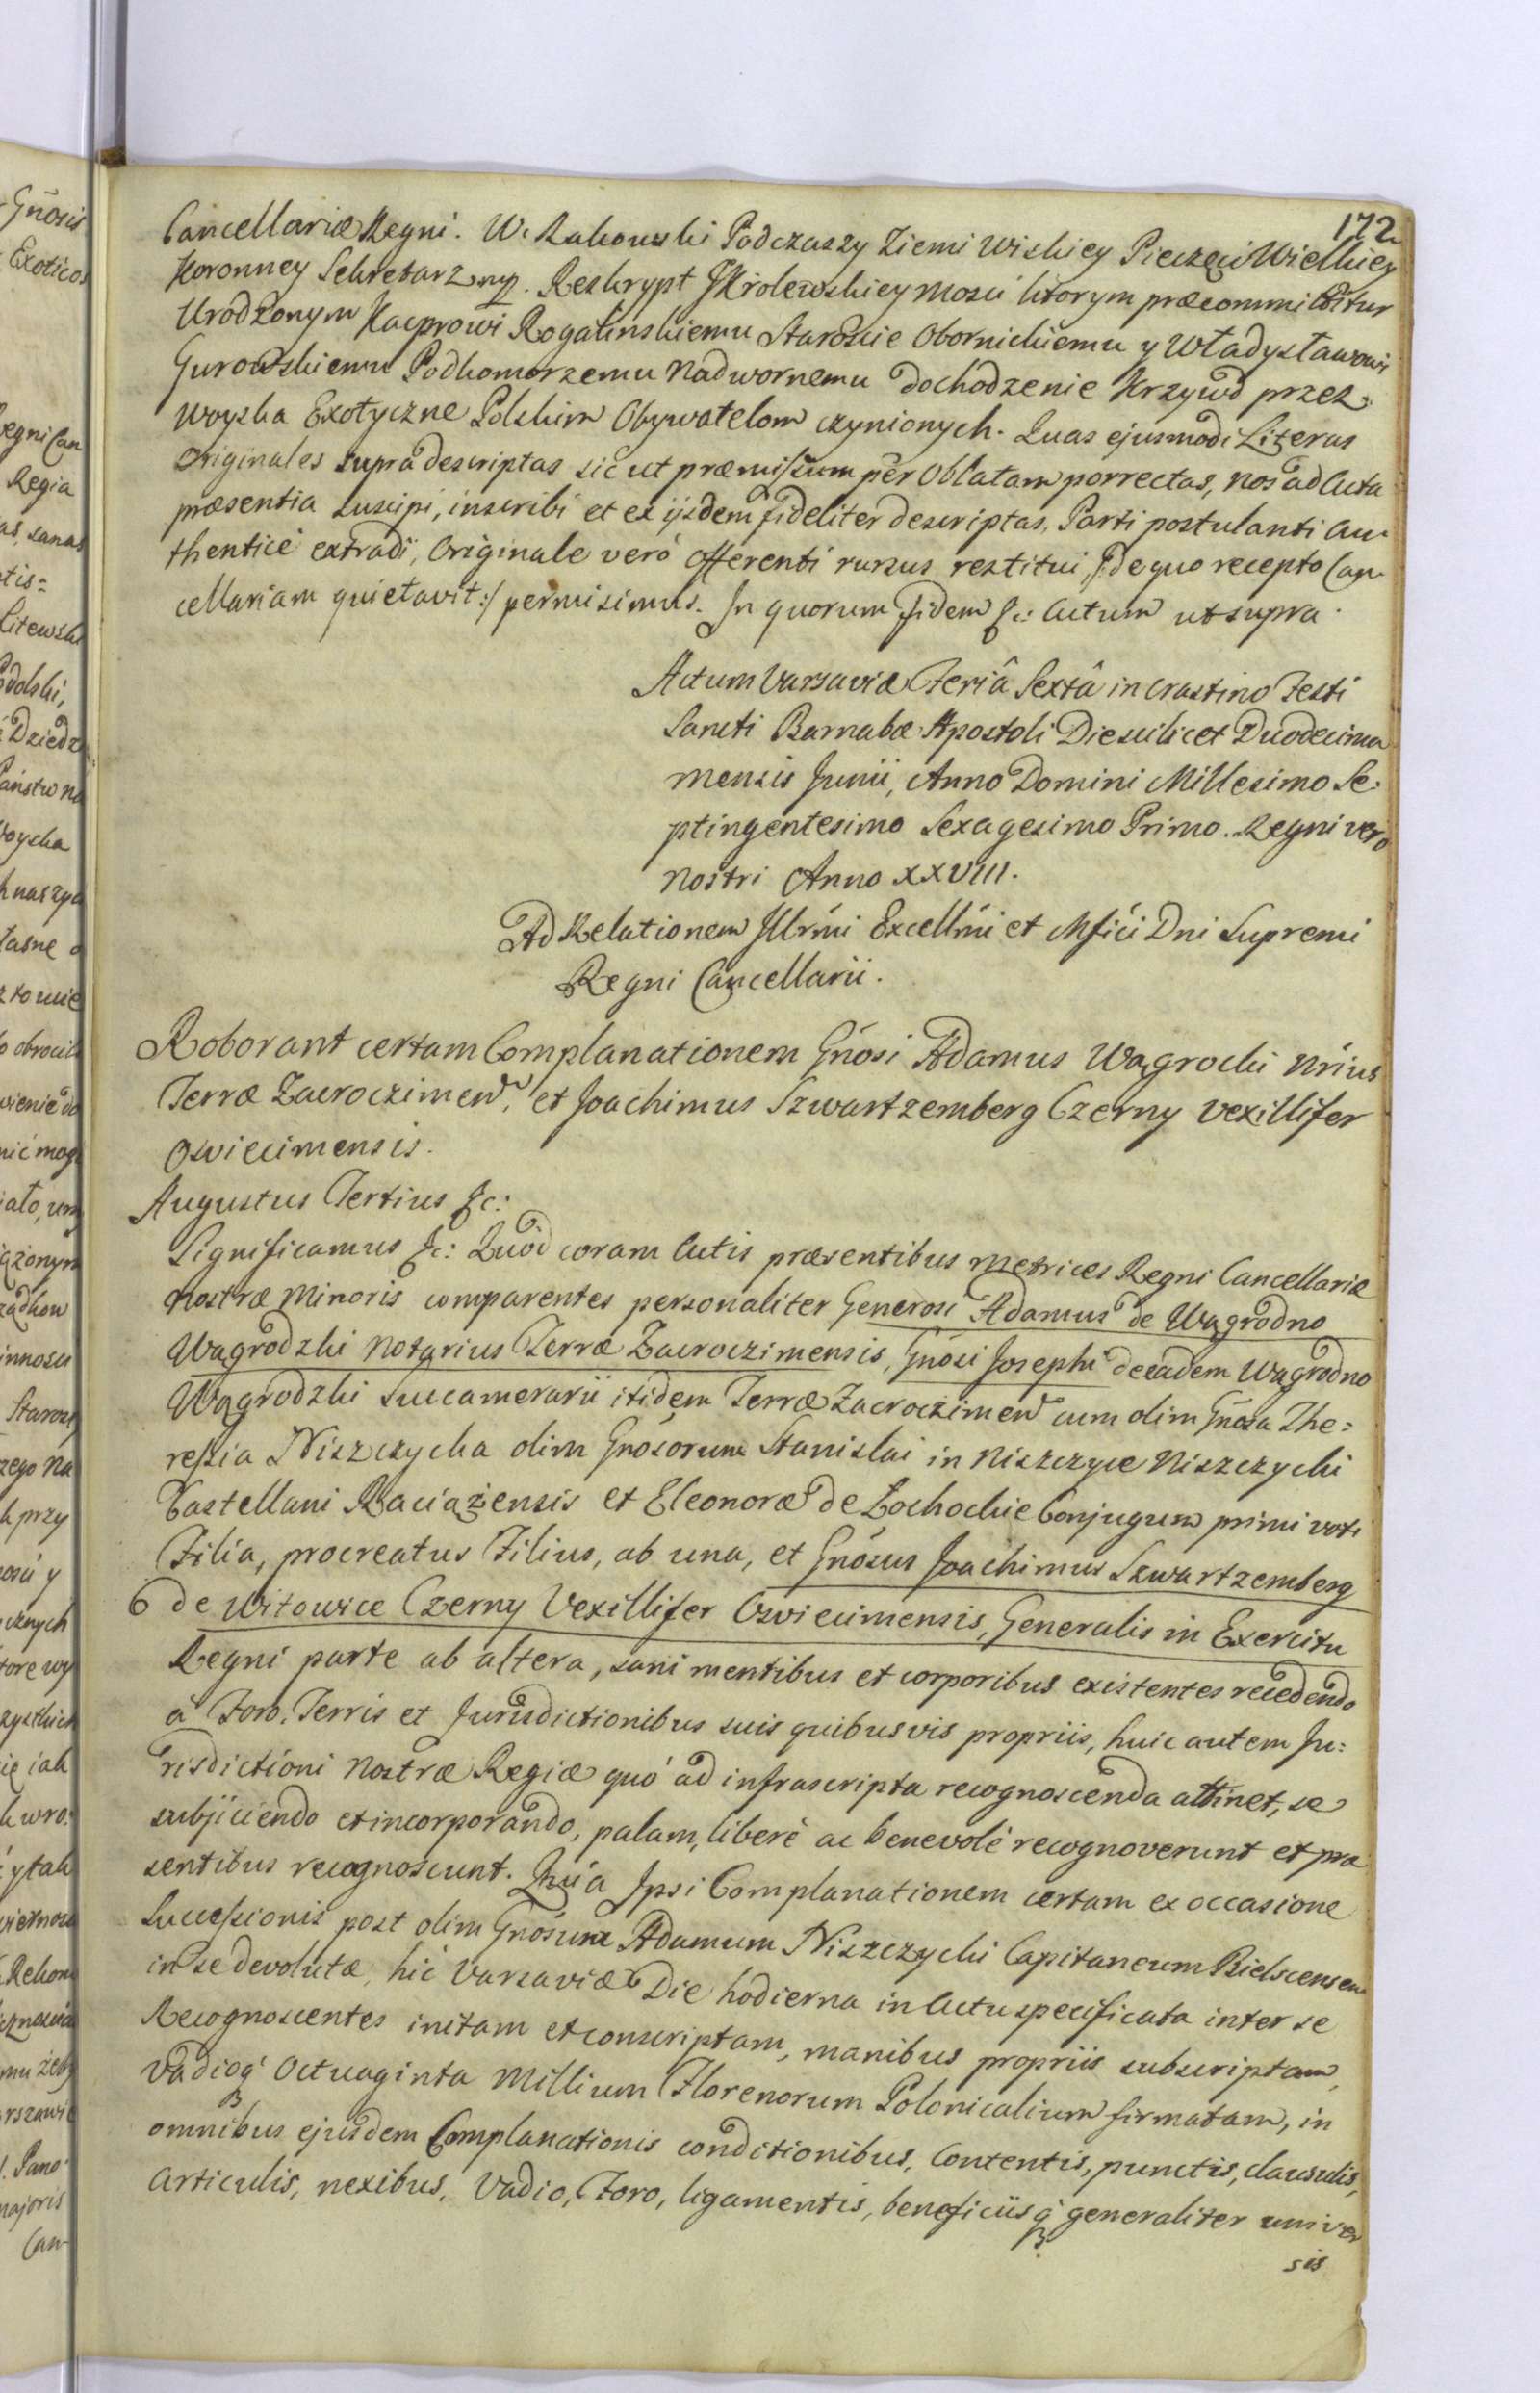 172
Cancellariæ Regni. W. Rakowski Podczaszy Ziemi Wiskiey Pieczęci Wielkiey
Koronney Sekretarz mp. Reskrypt JKrolewskiey Mosci ktorym præcommittitur
Urodzonym Kacprowi Rogalinskiemu Staroscie Obornickiemu y Władysławowi
Gurowskiemu Podkomorzemu Nadwornemu dochodzenie Krzywd przez
Woyska Exotyczne Polskim Obywatelom czynionych. Quas ejusmodi Literas
Originales supra descriptas sic ut præmissum per Oblatam porrectas, nos ad Acta
præsentia suscipi, inscribi et ex ijsdem fideliter descriptas, Parti postulanti au-
thenticè extradi, Originale verò Offerenti rursus restitui, /: de quo recepto Can-
cellariam quietavit :/ permisimus. In quorum fidem &c: Actum ut supra.
Actum Varsaviæ Feriâ Sextâ in Crastino Festi
Sancti Barnabæ Apostoli Die scilicet Duodecima
mensis Junii, Anno Domini Millesimo Se-
ptingentesimo Sexagesimo Primo. Regni vero
Nostri Anno XXVIII.
Ad Relationem Illrmi Excellmi et Mfici Dni Supremi
Regni Cancellarii.
Roborant certam Complanationem Gnosi Adamus Wągrocki Nrius
Terræ Zacroczimen, et Joachimus Szwartzemberg Czerny Vexillifer
Osviecimensis.
Augustus Tertius &c:
Significamus &c: Quòd coram Actis præsentibus Metrices Regni Cancellariæ
Nostræ Minoris comparentes personaliter Generosi Adamus de Wągrodno
Wągrodzki Notarius Terræ Zacroczimensis, Gnosi Josephi de eadem Wągrodno
Wągrodzki Succamerarii itidem Terræ Zacroczimen cum olim Gnosa The=
ressia Niszczycka olim Gnosorum Stanislai in Niszczyce Niszczycki
Castellani Raciążensis et Eleonoræ de Lochockie Conjugum primi voti
Filia, procreatus Filius, ab una, et Gnosus Joachimus Szwartzemberg
6 de Witowice Czerny Vexillifer Osviecimensis, Generalis in Exercitu
Regni parte ab altera, sani mentibus et corporibus existentes recedendo
à Foro, Terris et Jurisdictionibus suis quibusvis propriis, huic autem Ju=
risdictioni Nostræ Regiæ quó ad infrascripta recognoscenda attinet, se
subjiciendo et incorporando, palam, liberè ac benevolè recognoverunt et præ
sentibus recognoscunt. Quia Ipsi Complanationem certam ex occasione
Successionis post olim Gnosum Adamum Niszczycki Capitaneum Bielscensem
in se devolutæ, hic Varsaviæ Die hodierna in Actu specificata inter se
Recognoscentes initam et conscriptam, manibus propriis subscriptam,
Vadioq Octuaginta Millium Florenorum Polonicalium firmatam, in
omnibus ejusdem Complanationis conditionibus, Contentis, punctis, clausulis,
Articulis, nexibus, Vadio, Foro, ligamentis, beneficiisq generaliter univer
sis